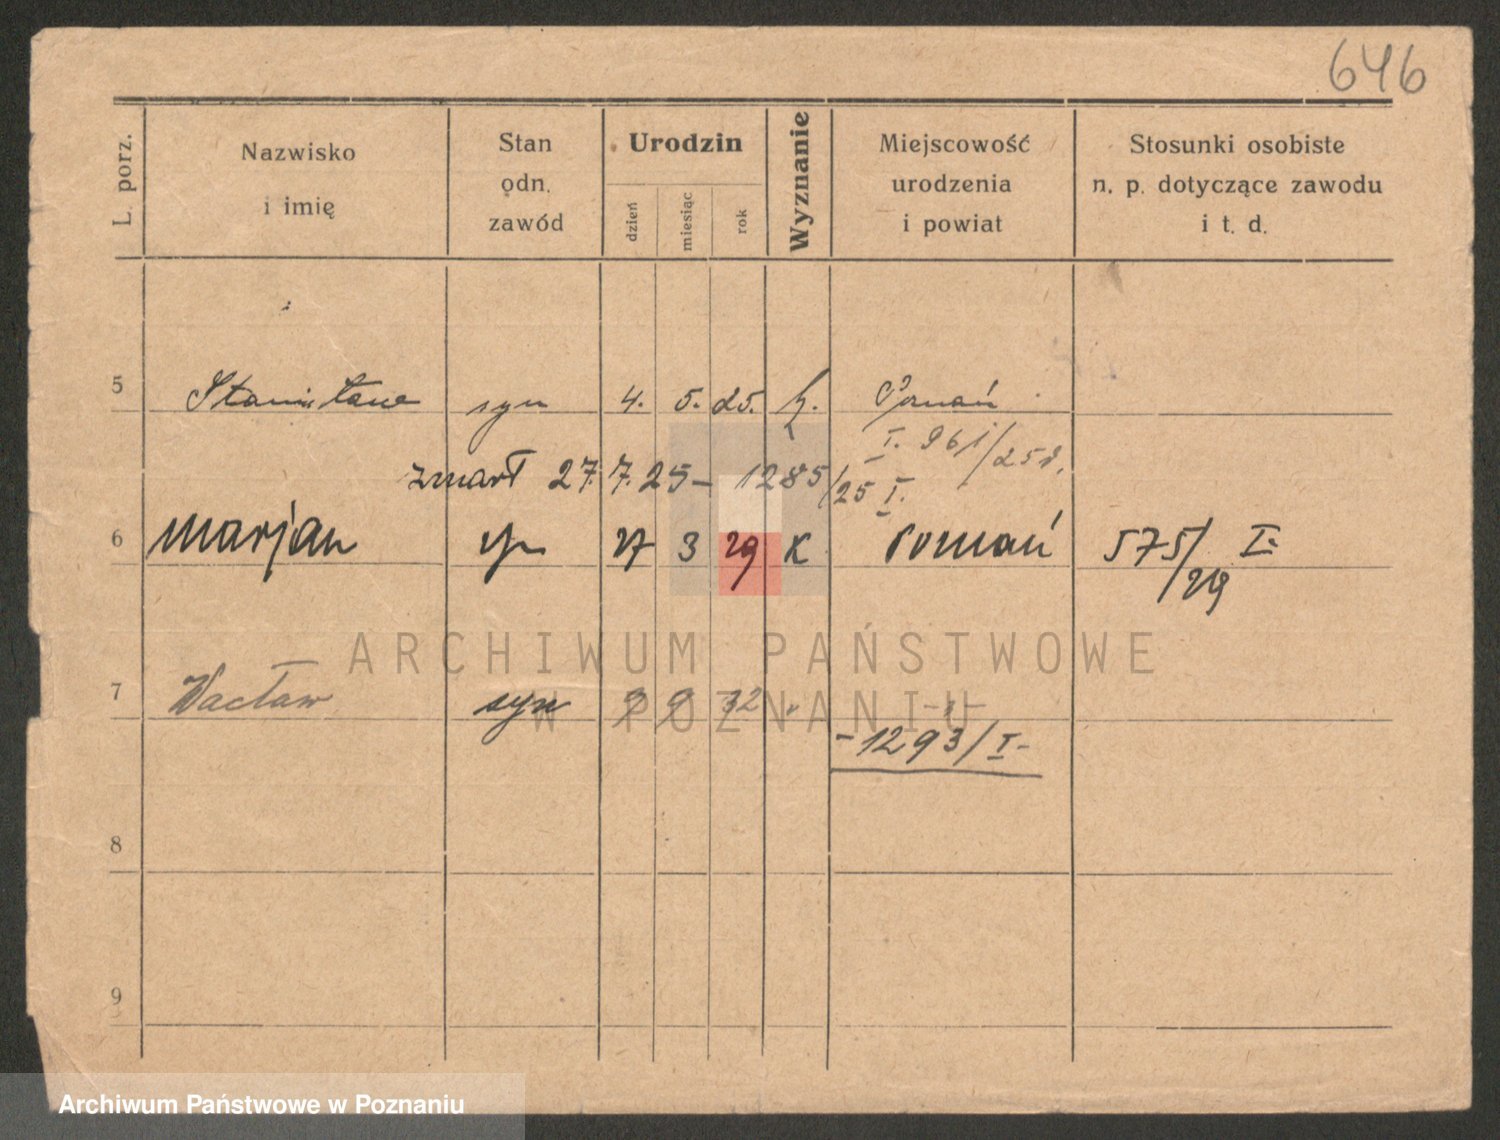 646
L. porz. Nazwisko i imię Stan odn. zawód Urodzin dzień miesiąc rok Wyznanie Miejscowość urodzenia i powiat Stosunki osobiste n. p. dotyczące zawodu i t. d.
5 syn 4. 5. 25. k. Poznań
I. 961/25
zmarł 27.7.25 – 1285/25 I.
6 Marjan syn 27 3 29 K Poznań 575/29 I.
ARCHIWUM PAŃSTWOWE
7 Wacław syn 9 9 32 " -"-
W POZNANIU
- 1293/I -
8
9
Archiwum Państwowe w Poznaniu